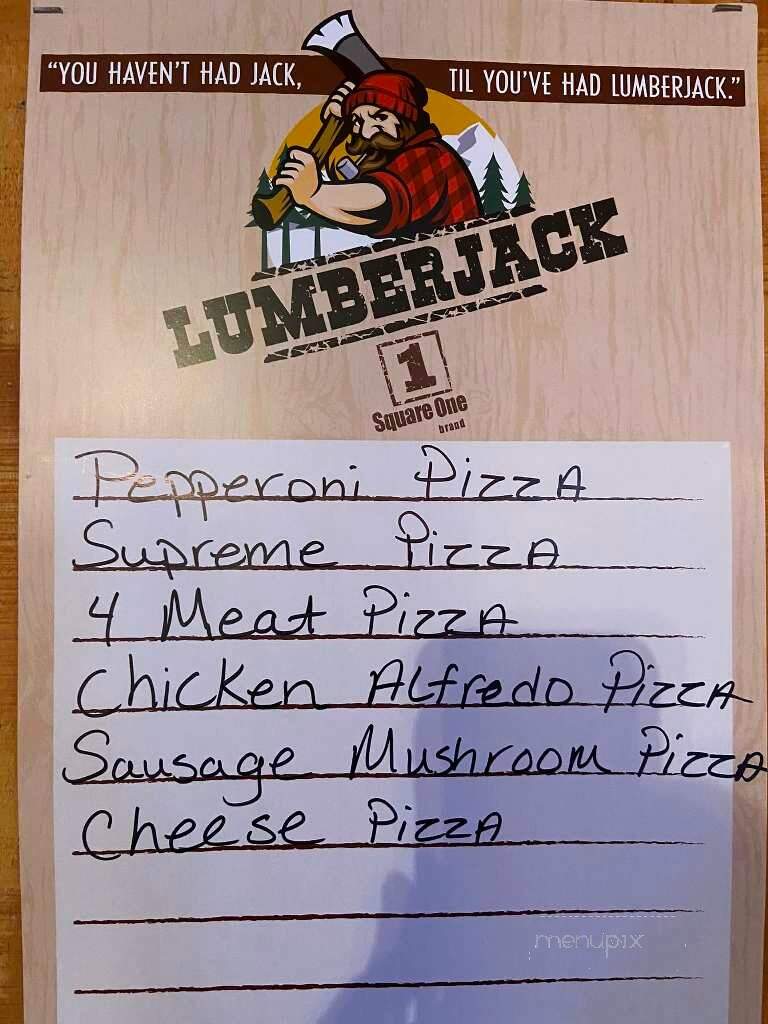 "YOU HAVEN'T HAD JACK, TIL YOU'VE HAD LUMBERJACK."
LUMBERJACK
1
Square One
brand
Pepperoni Pizza
Supreme Pizza
4 Meat Pizza
Chicken Alfredo Pizza
Sausage Mushroom Pizza
Cheese Pizza
menupix